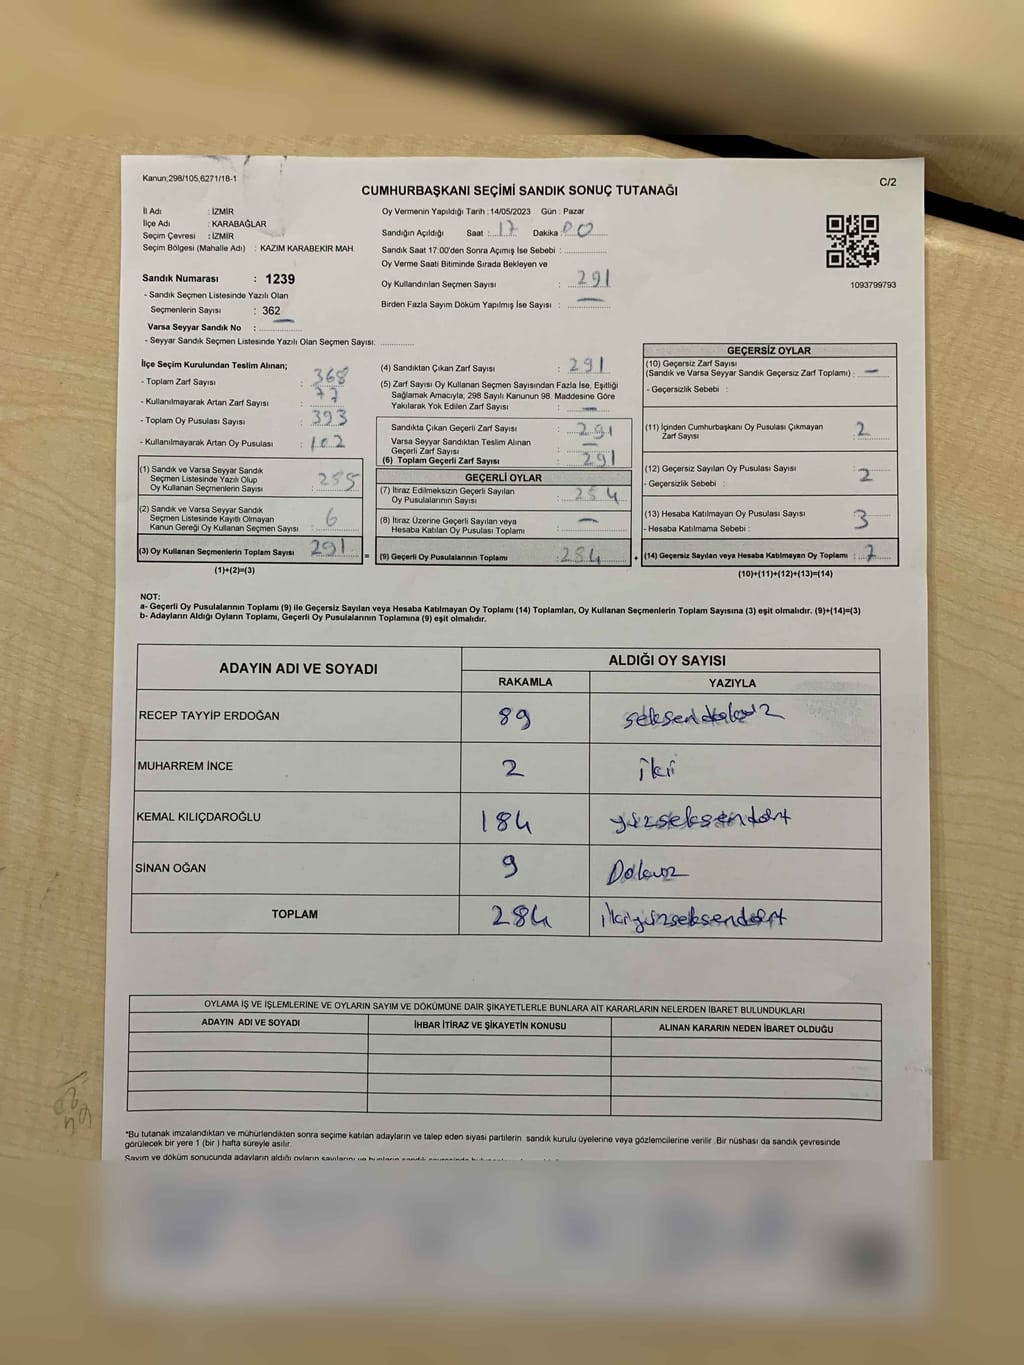 Kanun;298/105,6271/18-1
C/2
CUMHURBAŞKANI SEÇİMİ SANDIK SONUÇ TUTANAĞI
İl Adı : İZMİR
İlçe Adı : KARABAĞLAR
Seçim Çevresi : İZMİR
Seçim Bölgesi (Mahalle Adı) : KAZIM KARABEKİR MAH.
Sandık Numarası : 1239
- Sandık Seçmen Listesinde Yazılı Olan
Seçmenlerin Sayısı : 362
Varsa Seyyar Sandık No : —
- Seyyar Sandık Seçmen Listesinde Yazılı Olan Seçmen Sayısı:
Oy Vermenin Yapıldığı Tarih :14/05/2023 Gün : Pazar
Sandığın Açıldığı Saat : 17 Dakika : 00
Sandık Saat 17:00'den Sonra Açımış İse Sebebi :
Oy Verme Saati Bitiminde Sırada Bekleyen ve
Oy Kullandırılan Seçmen Sayısı : 291
Birden Fazla Sayım Döküm Yapılmış İse Sayısı : —
1093799793
İlçe Seçim Kurulundan Teslim Alınan;
- Toplam Zarf Sayısı : 368
- Kullanılmayarak Artan Zarf Sayısı : 77
- Toplam Oy Pusulası Sayısı : 393
- Kullanılmayarak Artan Oy Pusulası : 102
(1) Sandık ve Varsa Seyyar Sandık
Seçmen Listesinde Yazılı Olup
Oy Kullanan Seçmenlerin Sayısı :
(2) Sandık ve Varsa Seyyar Sandık
Seçmen Listesinde Kayıtlı Olmayan
Kanun Gereği Oy Kullanan Seçmen Sayısı : 6
(3) Oy Kullanan Seçmenlerin Toplam Sayısı : 291 =
(1)+(2)=(3)
(4) Sandıktan Çıkan Zarf Sayısı : 291
(5) Zarf Sayısı Oy Kullanan Seçmen Sayısından Fazla İse, Eşitliği
Sağlamak Amacıyla; 298 Sayılı Kanunun 98. Maddesine Göre
Yakılarak Yok Edilen Zarf Sayısı : —
Sandıkta Çıkan Geçerli Zarf Sayısı : 291
Varsa Seyyar Sandıktan Teslim Alınan
Geçerli Zarf Sayısı : —
(6) Toplam Geçerli Zarf Sayısı : 291
GEÇERLİ OYLAR
(7) İtiraz Edilmeksizin Geçerli Sayılan
Oy Pusulalarının Sayısı :
(8) İtiraz Üzerine Geçerli Sayılan veya
Hesaba Katılan Oy Pusulası Toplamı : —
(9) Geçerli Oy Pusulalarının Toplamı : 284 +
GEÇERSİZ OYLAR
(10) Geçersiz Zarf Sayısı
(Sandık ve Varsa Seyyar Sandık Geçersiz Zarf Toplamı) : —
- Geçersizlik Sebebi :
(11) İçinden Cumhurbaşkanı Oy Pusulası Çıkmayan
Zarf Sayısı : 2
(12) Geçersiz Sayılan Oy Pusulası Sayısı : 2
- Geçersizlik Sebebi :
(13) Hesaba Katılmayan Oy Pusulası Sayısı : 3
- Hesaba Katılmama Sebebi :
(14) Geçersiz Sayılan veya Hesaba Katılmayan Oy Toplamı : 7
(10)+(11)+(12)+(13)=(14)
NOT:
a- Geçerli Oy Pusulalarının Toplamı (9) ile Geçersiz Sayılan veya Hesaba Katılmayan Oy Toplamı (14) Toplamları, Oy Kullanan Seçmenlerin Toplam Sayısına (3) eşit olmalıdır. (9)+(14)=(3)
b- Adayların Aldığı Oyların Toplamı, Geçerli Oy Pusulalarının Toplamına (9) eşit olmalıdır.
ADAYIN ADI VE SOYADI ALDIĞI OY SAYISI
RAKAMLA YAZIYLA
RECEP TAYYİP ERDOĞAN 89 seksendokuz
MUHARREM İNCE 2 iki
KEMAL KILIÇDAROĞLU 184 yüzseksendört
SİNAN OĞAN 9 Dokuz
TOPLAM 284 ikiyüzseksendört
OYLAMA İŞ VE İŞLEMLERİNE VE OYLARIN SAYIM VE DÖKÜMÜNE DAİR ŞİKAYETLERLE BUNLARA AİT KARARLARIN NELERDEN İBARET BULUNDUKLARI
ADAYIN ADI VE SOYADI İHBAR İTİRAZ VE ŞİKAYETİN KONUSU ALINAN KARARIN NEDEN İBARET OLDUĞU
*Bu tutanak imzalandıktan ve mühürlendikten sonra seçime katılan adayların ve talep eden siyasi partilerin sandık kurulu üyelerine veya gözlemcilerine verilir .Bir nüshası da sandık çevresinde
görülecek bir yere 1 (bir ) hafta süreyle asılır.
Sayım ve döküm sonucunda adayların aldığı oyların sayılarını